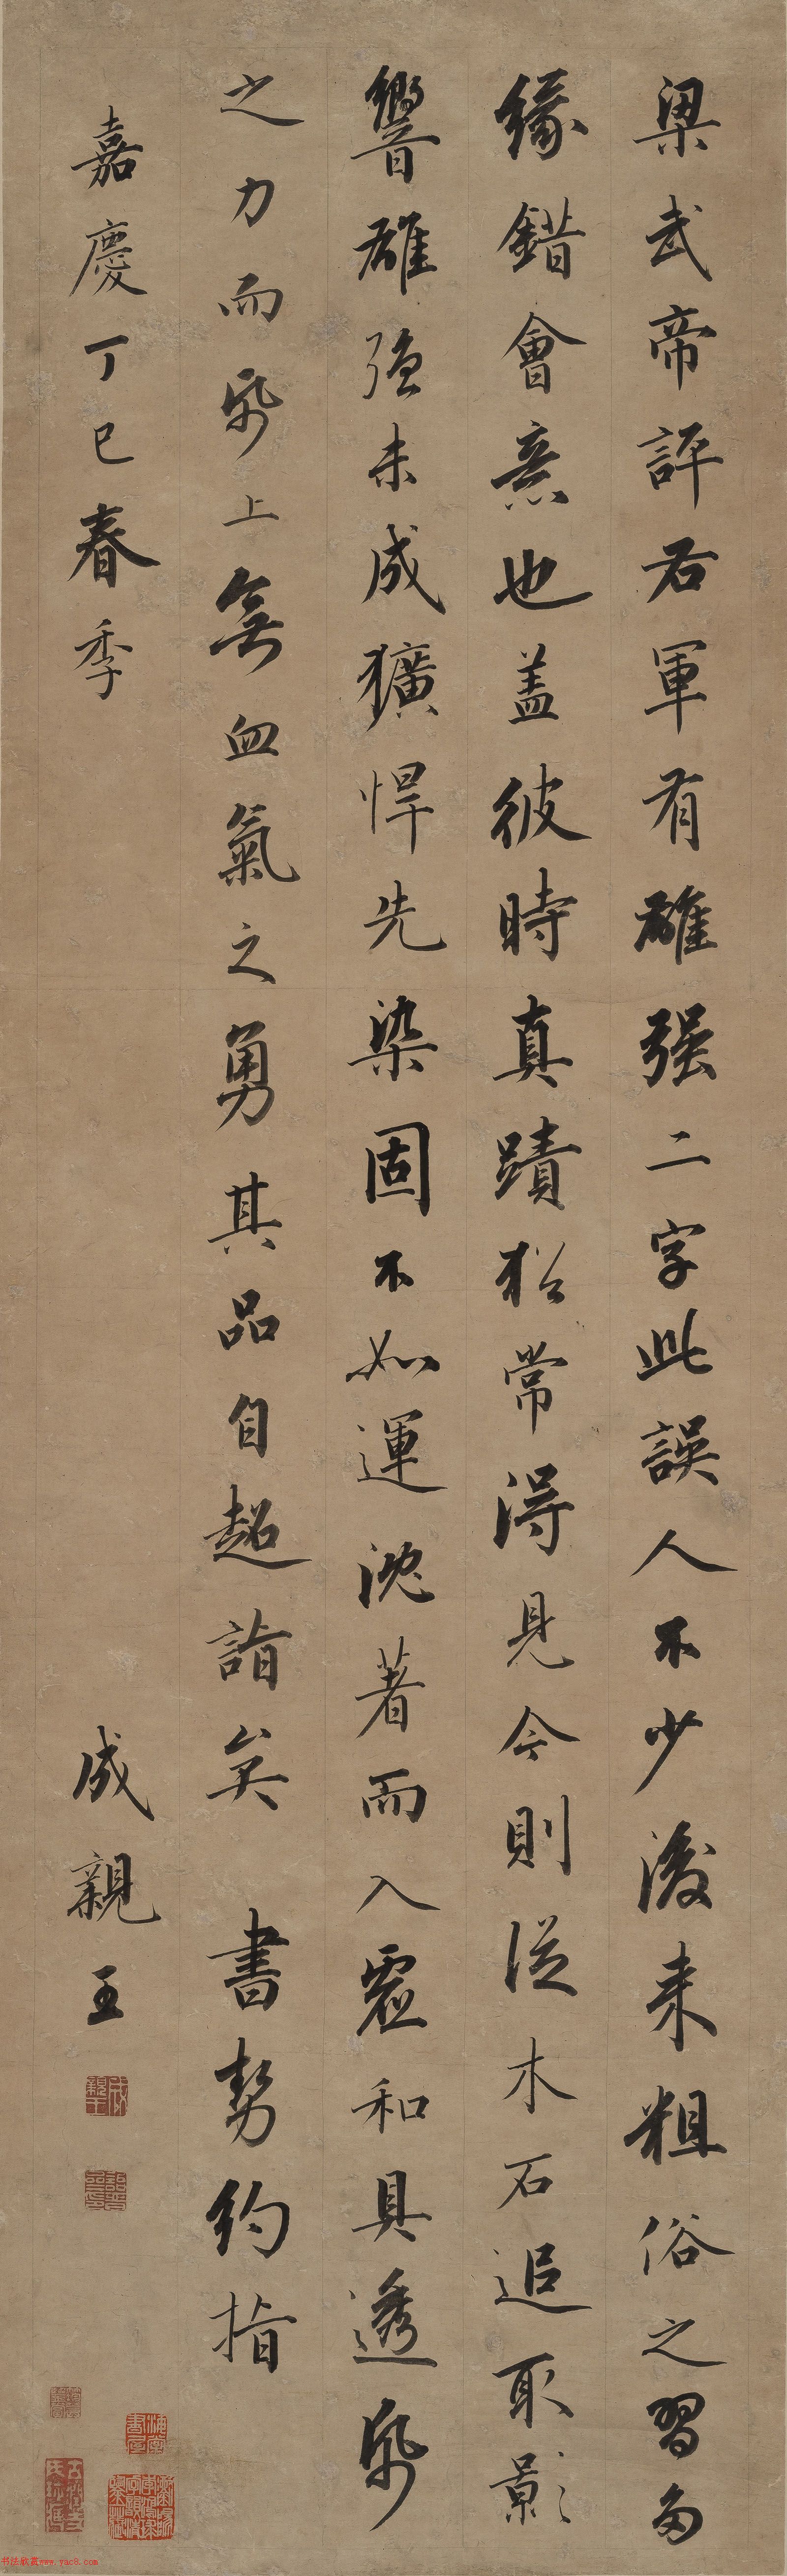 梁武帝評右軍有雄强二字此誤人不少後來粗俗之習多
緣錯會意也蓋彼時真蹟猶常得見今則從木石追取影
響雄强未成獷悍先染固不如運沈著而入虛和具透紙
之力而紙上無血氣之勇其品自超詣矣 書勢約指
嘉慶丁巳春季
成親王
成親王
书法欣赏www.yac8.com